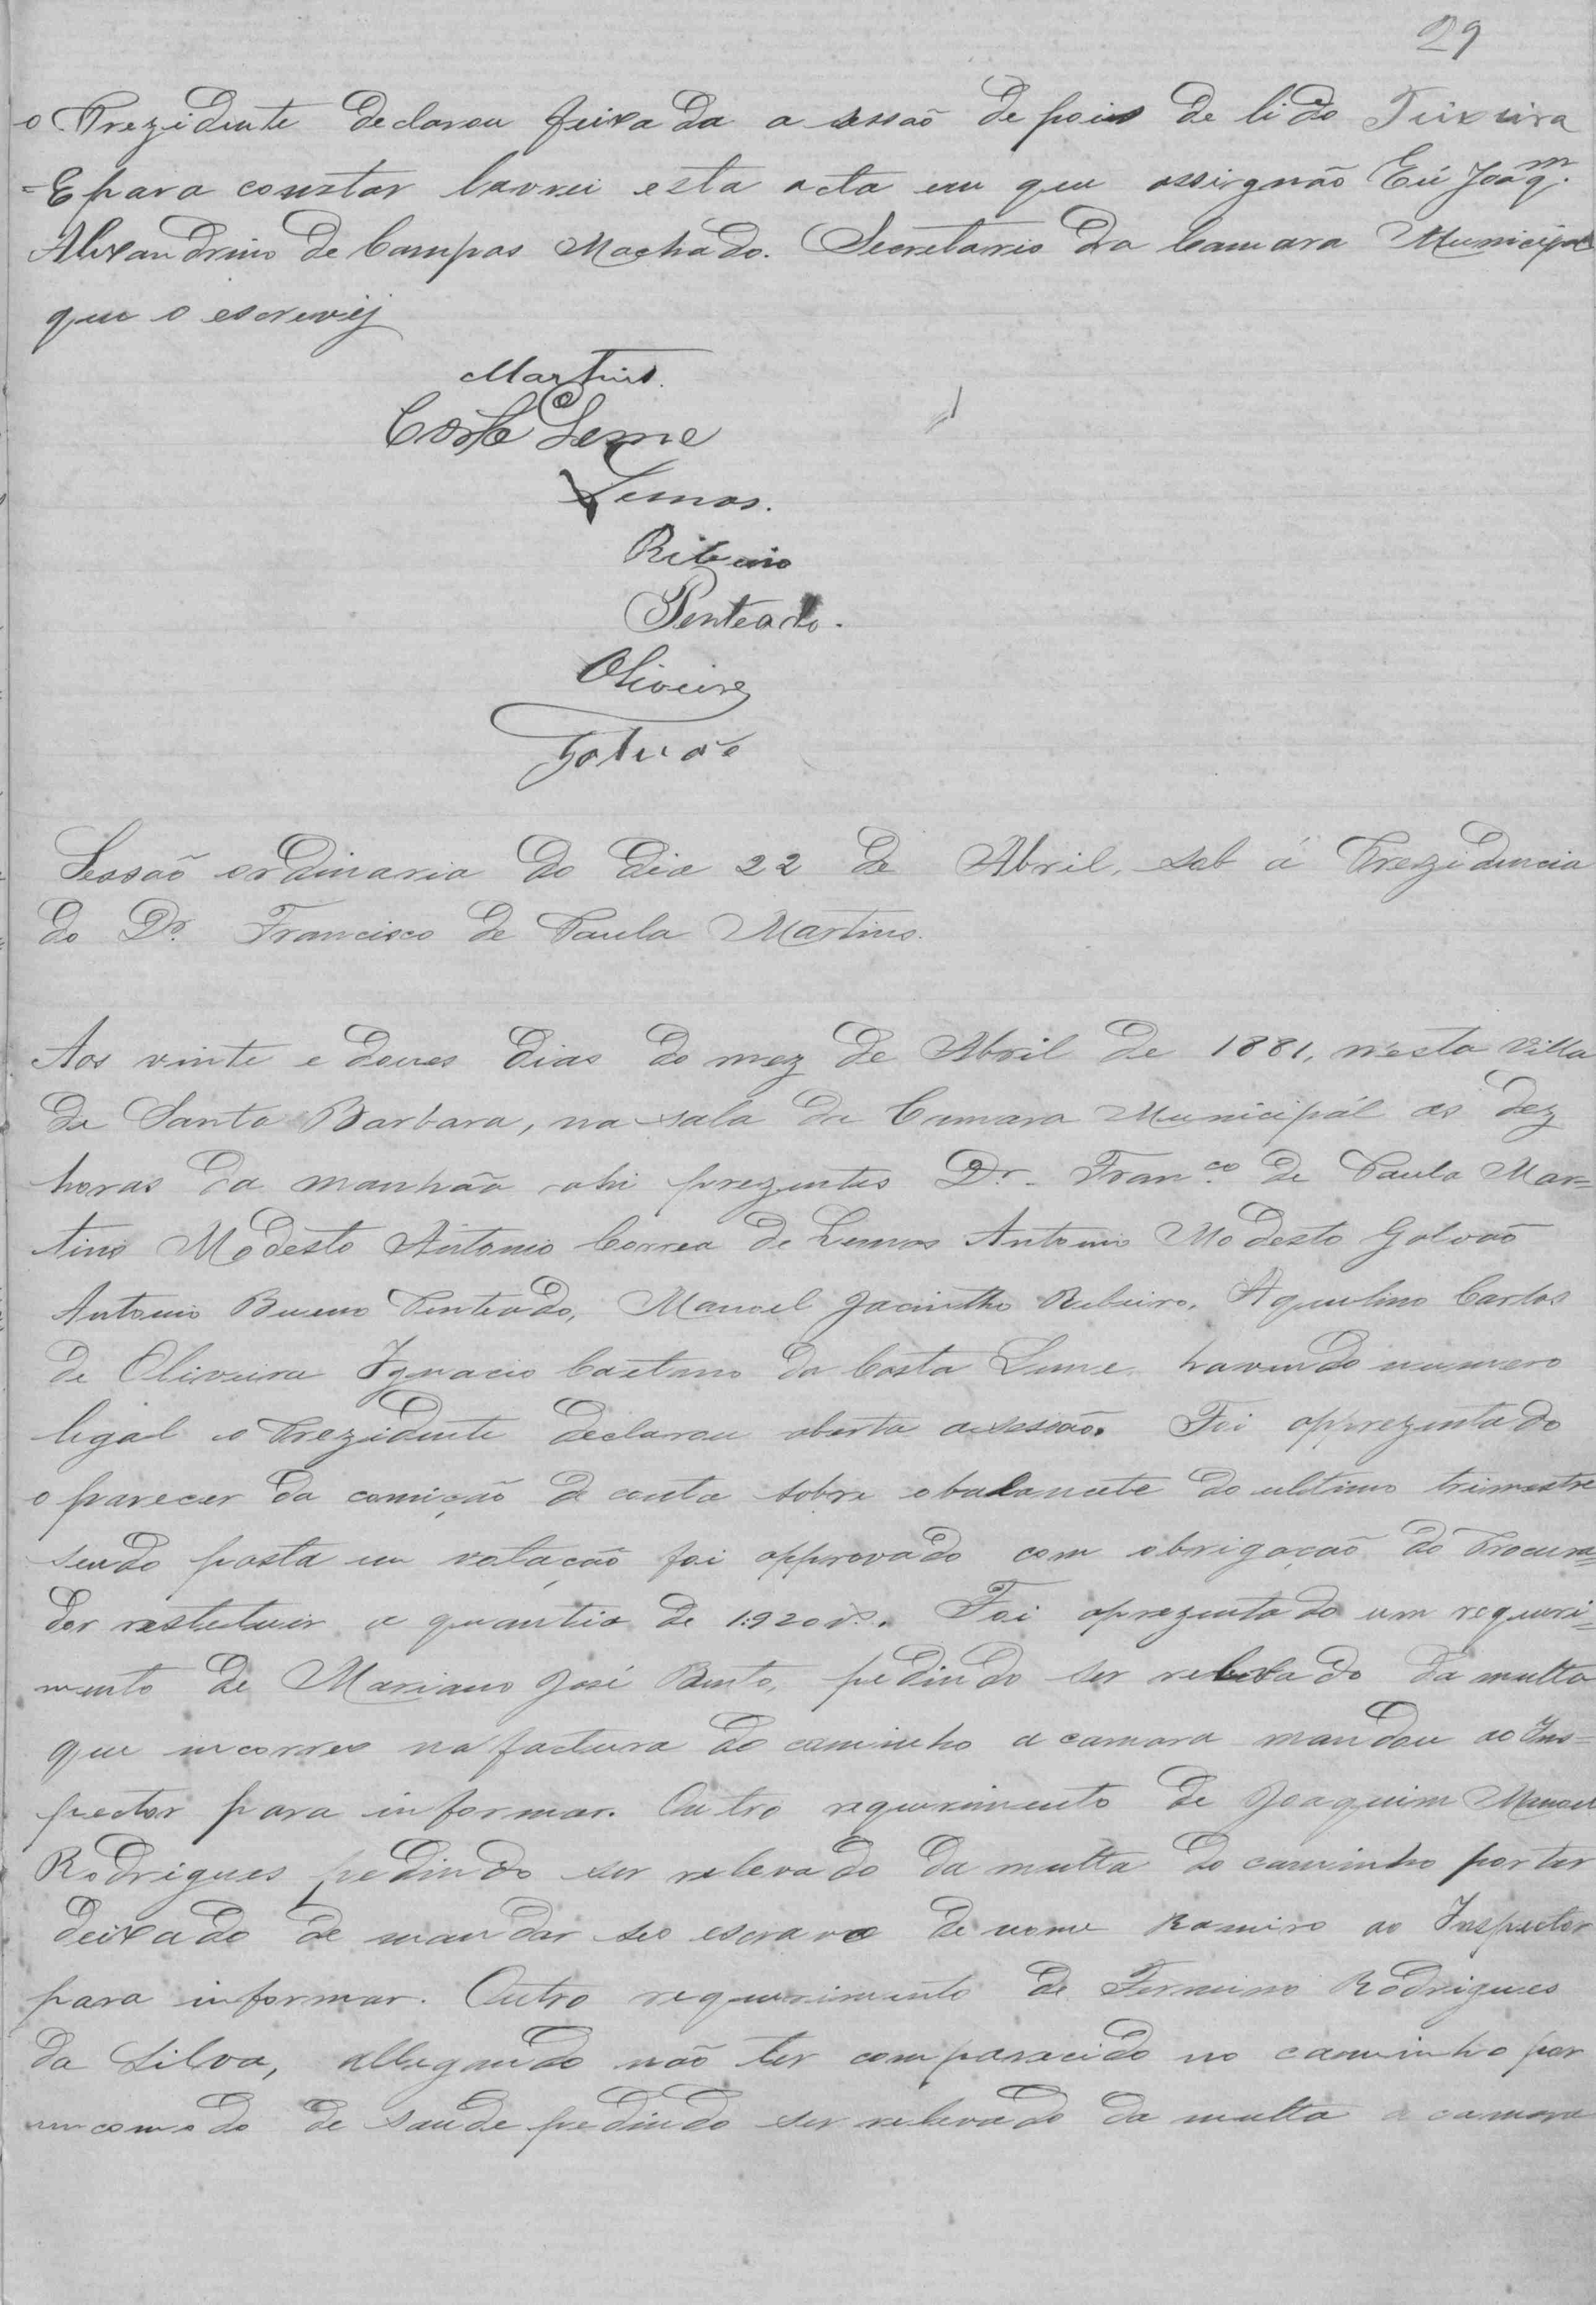 29
o Prezidente declarou feixada a sessaõ depois de lido Teixeira
=E para constar lavrei esta acta em que assignão Eu Joaq.m
Alixandrino de Campos Machado. Secretario da Camara Municipal
que o escrevij
Martins.
Costa Leme
Lemos.
Ribeiro
Penteado.
Oliveira
Galvão
Sessaõ ordinaria do dia 22 de Abril, sob á Prezidencia
do Dr. Francisco de Paula Martins.
Aos vinte e doues dias do mez de Abril de 1881, nesta Villa
de Santa Barbara, na sala da Camara Municipál as dez
horas da manhão ahi prezentes Dr. Fran.co de Paula Mar=
tins Modesto Antonio Correa de Lemos Antonio Modesto Galvaõ
Antonio Bueno Penteado, Manoel Jacintho Ribeiro, Aquilino Carlos
de Oliveira Ignacio Caetano da Costa Leme havendo numero
legal o Prezidente declarou aberta a sessão. Foi apprezentado
o parecer da comição de conta sobre o balancete do ultimo trimestre
sendo posta em votação foi approvado com obrigação do Procura=
dor restetuir a quantia de 1:920 rs. Foi aprezentado um requiri=
mento de Mariano José Bento, pedindo ser relevado da multa
que incorreo na factura do caminho a camara mandou ao Ins=
pector para informar. Outro requerimento de Joaquim Manoel
Rodrigues pedindo ser relevado da multa do caminho por ter
deixado de mandar seo escravo de nome Ramiro ao Inspector
para informar. Outro requerimento de Fermino Rodrigues
da Silva, allegando não ter comparacido no caminho por
incomodo de saude pedindo ser relevado da multa a camara